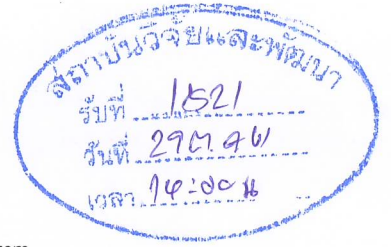 สถาบันวิจัยและพัฒนา
รับที่ 1521
วันที่ 29 ต.ค.
เวลา